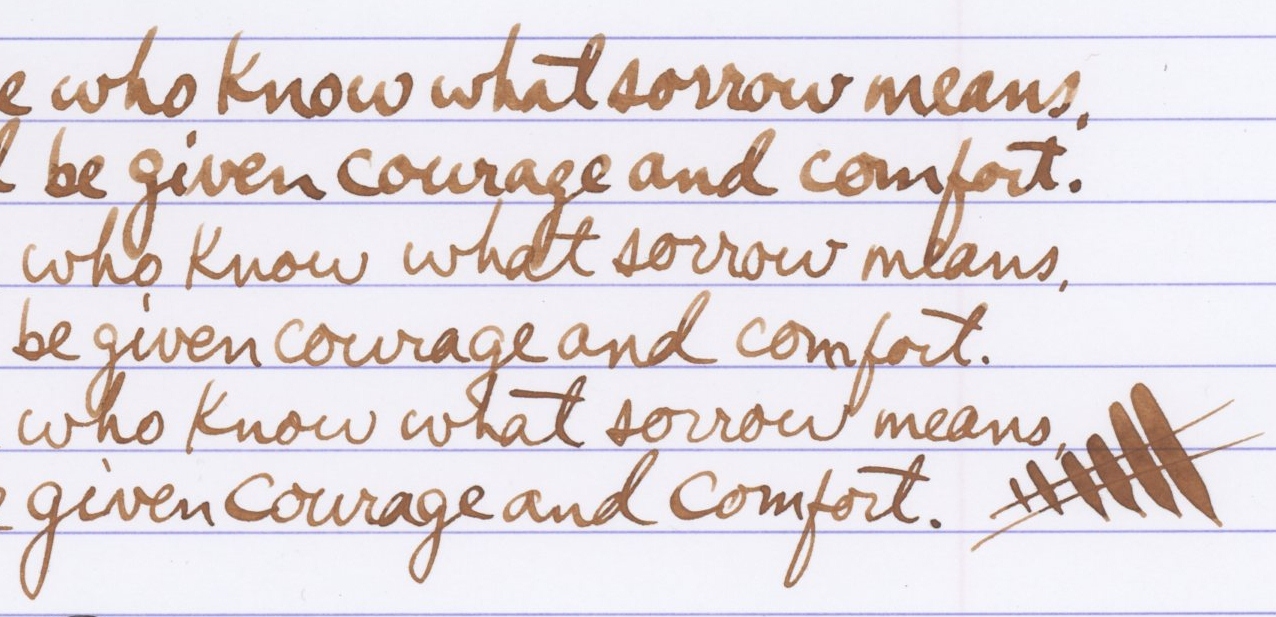 e who know what sorrow means,
l be given courage and comfort.
who know what sorrow means,
be given courage and comfort.
who know what sorrow means,
e given courage and comfort.